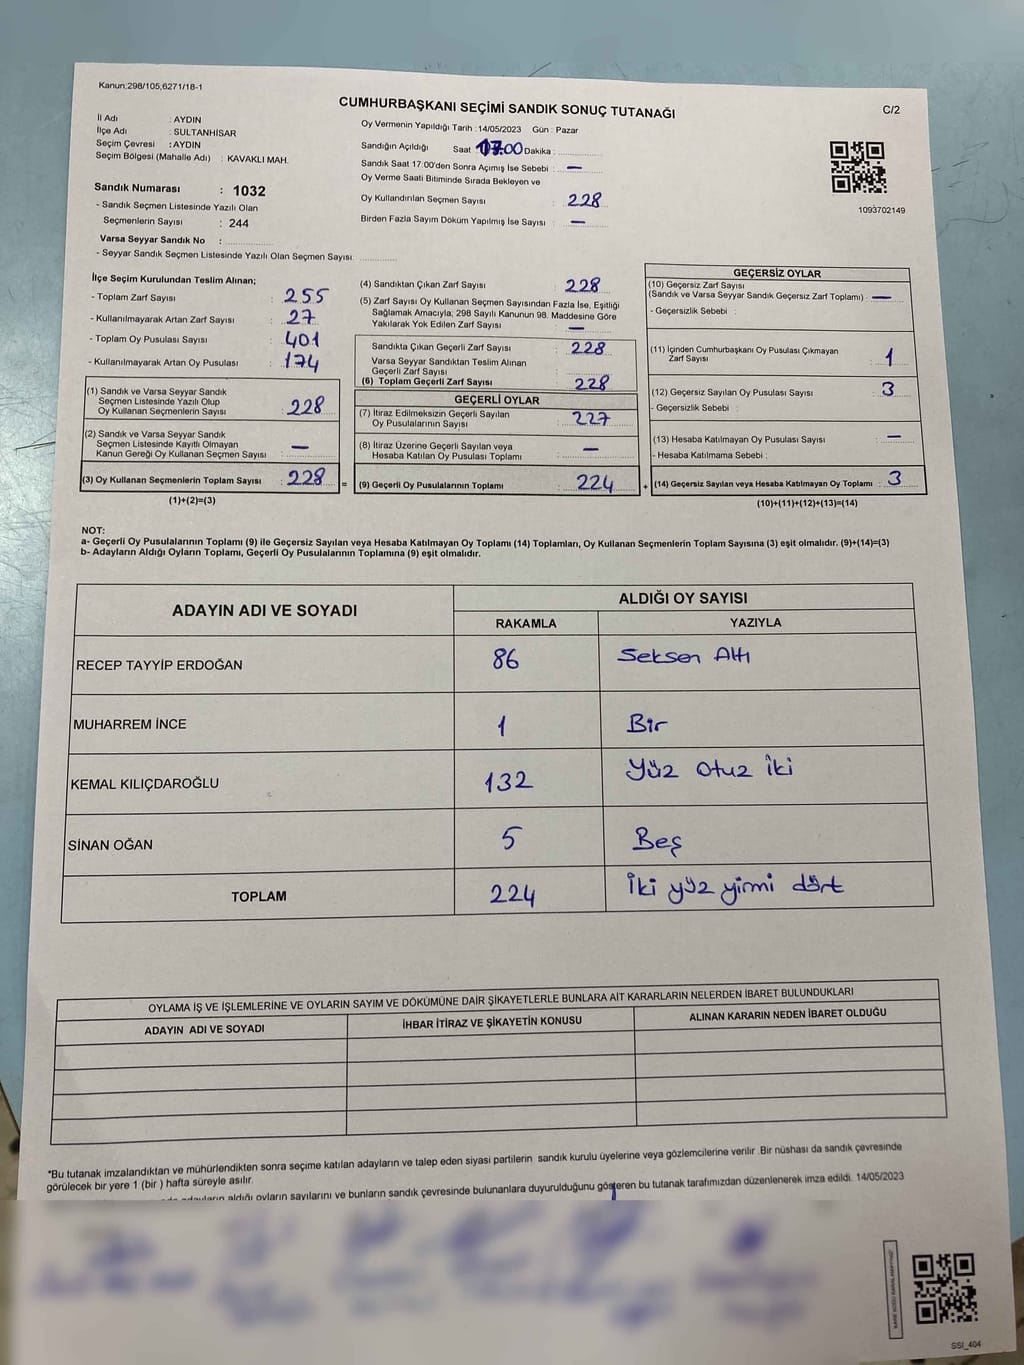 Kanun:298/105,6271/18-1
CUMHURBAŞKANI SEÇİMİ SANDIK SONUÇ TUTANAĞI
C/2
İl Adı : AYDIN
İlçe Adı : SULTANHİSAR
Seçim Çevresi : AYDIN
Seçim Bölgesi (Mahalle Adı) : KAVAKLI MAH.
Sandık Numarası : 1032
- Sandık Seçmen Listesinde Yazılı Olan
Seçmenlerin Sayısı : 244
Varsa Seyyar Sandık No :
- Seyyar Sandık Seçmen Listesinde Yazılı Olan Seçmen Sayısı:
Oy Vermenin Yapıldığı Tarih :14/05/2023 Gün : Pazar
Sandığın Açıldığı Saat 17.00 Dakika :
Sandık Saat 17:00'den Sonra Açımış İse Sebebi : —
Oy Verme Saati Bitiminde Sırada Bekleyen ve
Oy Kullandırılan Seçmen Sayısı : 228
Birden Fazla Sayım Döküm Yapılmış İse Sayısı : —
1093702149
İlçe Seçim Kurulundan Teslim Alınan;
- Toplam Zarf Sayısı : 255
- Kullanılmayarak Artan Zarf Sayısı : 27
- Toplam Oy Pusulası Sayısı : 401
- Kullanılmayarak Artan Oy Pusulası : 174
(1) Sandık ve Varsa Seyyar Sandık
Seçmen Listesinde Yazılı Olup
Oy Kullanan Seçmenlerin Sayısı : 228
(2) Sandık ve Varsa Seyyar Sandık
Seçmen Listesinde Kayıtlı Olmayan
Kanun Gereği Oy Kullanan Seçmen Sayısı : —
(3) Oy Kullanan Seçmenlerin Toplam Sayısı : 228 =
(1)+(2)=(3)
(4) Sandıktan Çıkan Zarf Sayısı : 228
(5) Zarf Sayısı Oy Kullanan Seçmen Sayısından Fazla İse, Eşitliği
Sağlamak Amacıyla, 298 Sayılı Kanunun 98. Maddesine Göre
Yakılarak Yok Edilen Zarf Sayısı : —
Sandıkta Çıkan Geçerli Zarf Sayısı : 228
Varsa Seyyar Sandıktan Teslim Alınan
Geçerli Zarf Sayısı :
(6) Toplam Geçerli Zarf Sayısı : 228
GEÇERLİ OYLAR
(7) İtiraz Edilmeksizin Geçerli Sayılan
Oy Pusulalarının Sayısı : 227
(8) İtiraz Üzerine Geçerli Sayılan veya
Hesaba Katılan Oy Pusulası Toplamı : —
(9) Geçerli Oy Pusulalarının Toplamı : 224 +
GEÇERSİZ OYLAR
(10) Geçersiz Zarf Sayısı
(Sandık ve Varsa Seyyar Sandık Geçersiz Zarf Toplamı) : —
- Geçersizlik Sebebi :
(11) İçinden Cumhurbaşkanı Oy Pusulası Çıkmayan
Zarf Sayısı : 1
(12) Geçersiz Sayılan Oy Pusulası Sayısı : 3
- Geçersizlik Sebebi :
(13) Hesaba Katılmayan Oy Pusulası Sayısı : —
- Hesaba Katılmama Sebebi :
(14) Geçersiz Sayılan veya Hesaba Katılmayan Oy Toplamı : 3
(10)+(11)+(12)+(13)=(14)
NOT:
a- Geçerli Oy Pusulalarının Toplamı (9) ile Geçersiz Sayılan veya Hesaba Katılmayan Oy Toplamı (14) Toplamları, Oy Kullanan Seçmenlerin Toplam Sayısına (3) eşit olmalıdır. (9)+(14)=(3)
b- Adayların Aldığı Oyların Toplamı, Geçerli Oy Pusulalarının Toplamına (9) eşit olmalıdır.
ADAYIN ADI VE SOYADI
ALDIĞI OY SAYISI
RAKAMLA YAZIYLA
RECEP TAYYİP ERDOĞAN 86 Seksen Altı
MUHARREM İNCE 1 Bir
KEMAL KILIÇDAROĞLU 132 Yüz Otuz İki
SİNAN OĞAN 5 Beş
TOPLAM 224 İki yüz yirmi dört
OYLAMA İŞ VE İŞLEMLERİNE VE OYLARIN SAYIM VE DÖKÜMÜNE DAİR ŞİKAYETLERLE BUNLARA AİT KARARLARIN NELERDEN İBARET BULUNDUKLARI
ADAYIN ADI VE SOYADI İHBAR İTİRAZ VE ŞİKAYETİN KONUSU ALINAN KARARIN NEDEN İBARET OLDUĞU
*Bu tutanak imzalandıktan ve mühürlendikten sonra seçime katılan adayların ve talep eden siyasi partilerin sandık kurulu üyelerine veya gözlemcilerine verilir. Bir nüshası da sandık çevresinde
görülecek bir yere 1 (bir ) hafta süreyle asılır.
adayların aldığı oyların sayılarını ve bunların sandık çevresinde bulunanlara duyurulduğunu gösteren bu tutanak tarafımızdan düzenlenerek imza edildi. 14/05/2023
SSI_404